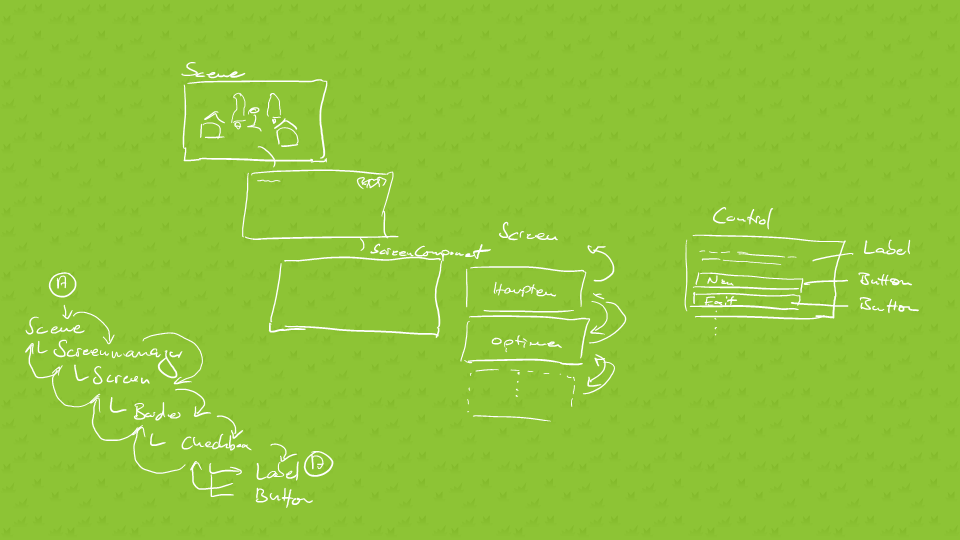 Scene
ScreenComponent
Screen
Haupten
Optionen
Control
Label
Neu
Button
Exit
Button
A
Scene
Screenmanager
Screen
Checkbox
Label A
Button